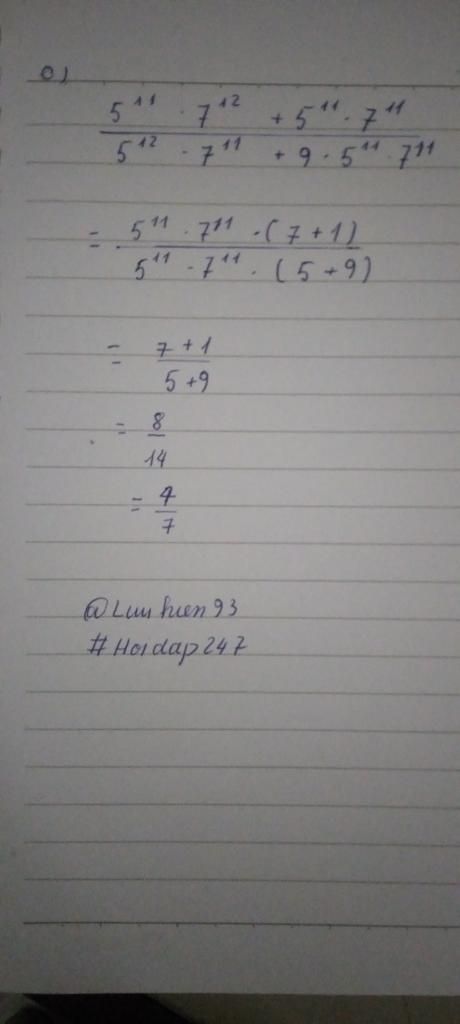 c)
5¹¹ · 7¹² + 5¹¹ · 7¹¹
5¹² · 7¹¹ + 9 · 5¹¹ · 7¹¹
= 5¹¹ · 7¹¹ · (7 + 1)
5¹¹ · 7¹¹ · (5 + 9)
= 7 + 1
5 + 9
= 8
14
= 4
7
@Luuhien93
#Hoidap247